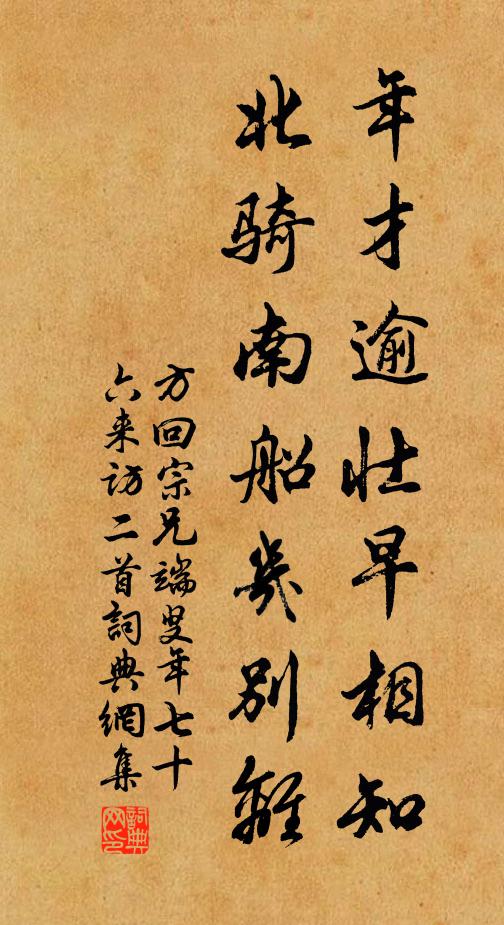 年才逾壮早相知
北骑南船几别離
方回宗兄端叟年七十
六来访二首詞典網集
詞典网印